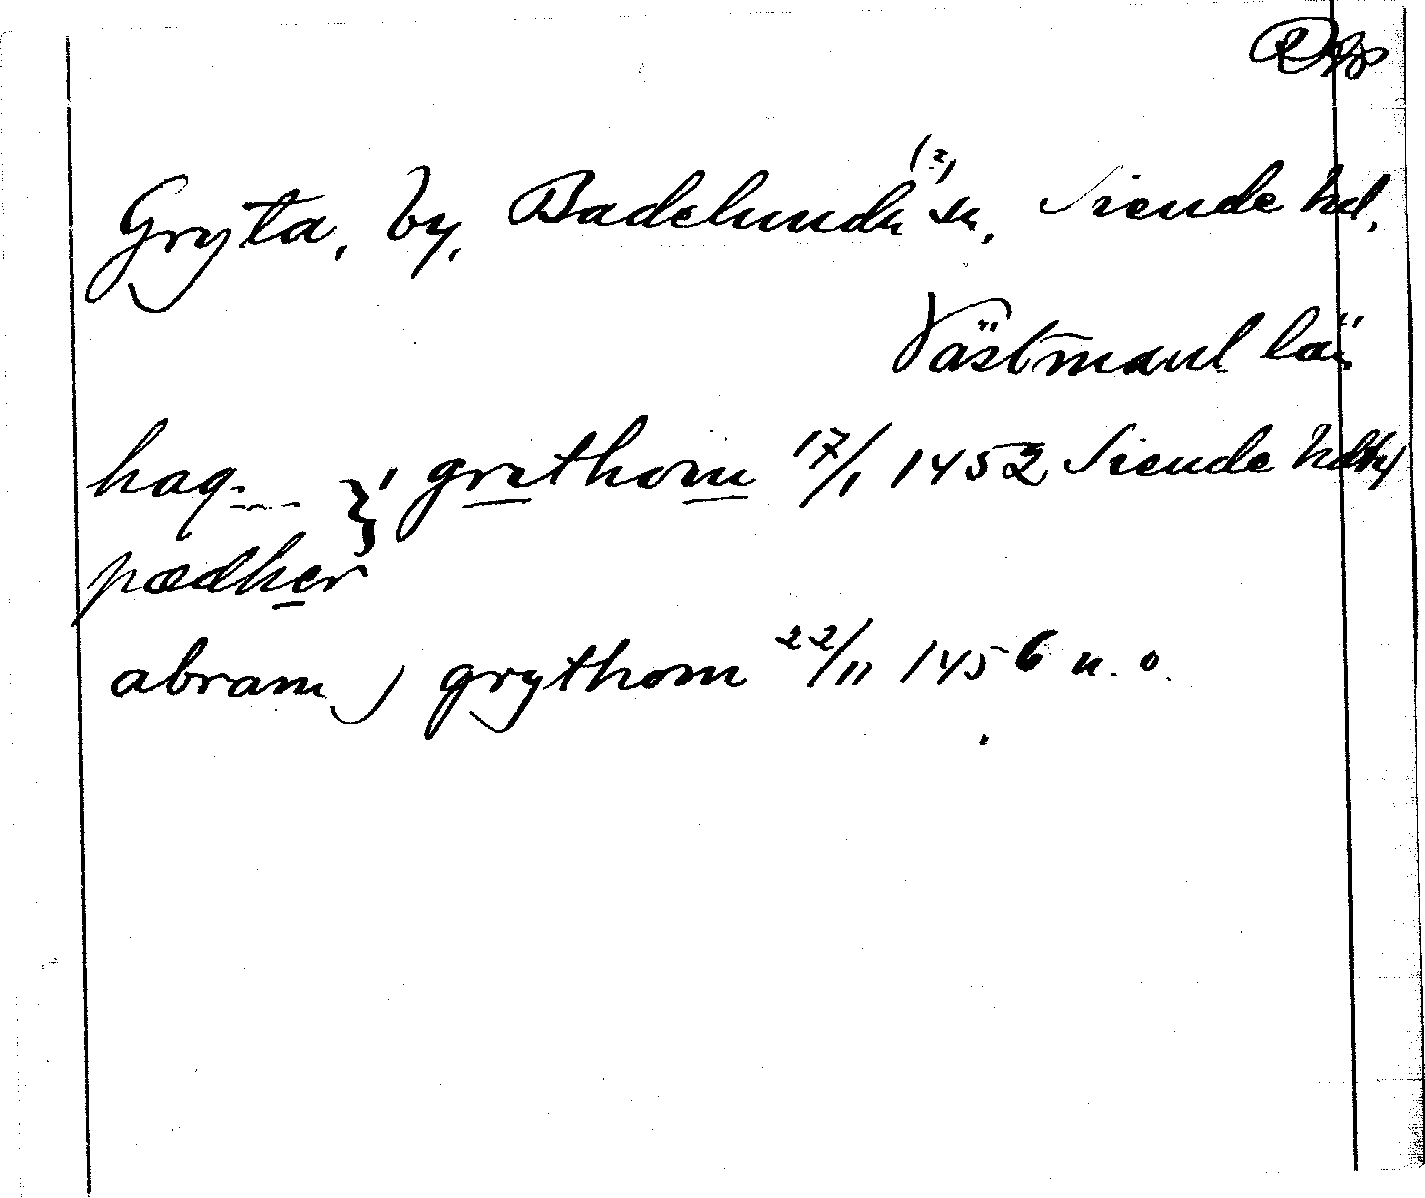 Gryta, by, Badelunda (?) sn, Siende hd.
Västmanl län
haq... } i grythom 17/1 1452 Siende hdtg
pædher
abram j grythom 22/11 1456 u. o.